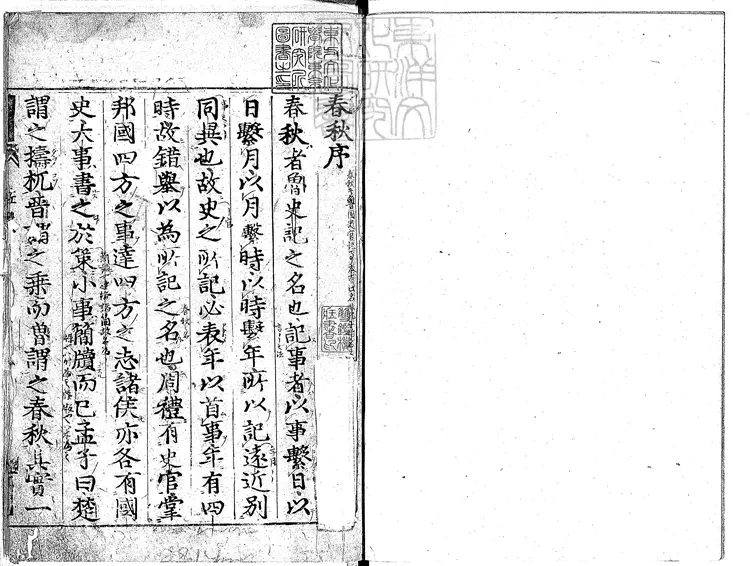 春秋序
春秋者魯史記之名也記事者以事繫日以
日繫月以月繫時以時繫年所以記遠近別
同異也故史之所記必表年以首事年有四
時故錯舉以為所記之名也周禮有史官掌
邦國四方之事達四方之志諸侯亦各有國
史大事書之於策小事簡牘而已孟子曰楚
謂之檮杌晉謂之乘而魯謂之春秋其實一